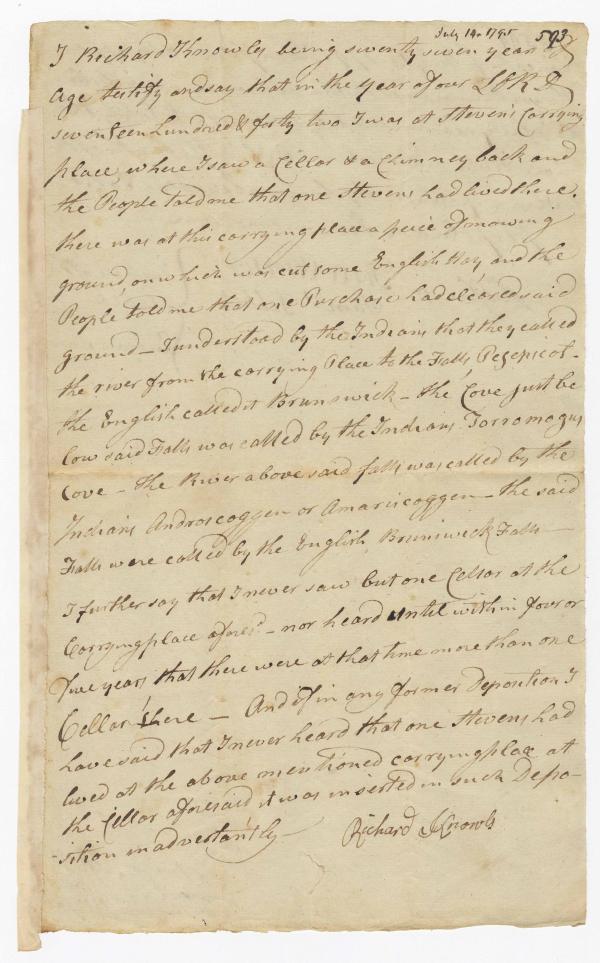 July 14. 1795 593
I Richard Knowles being seventy seven years of
age testify and say that in the year of our LORD
seventeen hundred & forty two I was at Stevens's Carrying
place, where I saw a Cellar & a Chimney back and
the People told me that one Stevens had lived there.
there was at this carrying place a peice of mowing
ground, on which was cut some English Hay, and the
People told me that one Purchase had cleared said
ground — I understood by the Indians that they called
the river from the carrying Place to the Falls, Pegepscot-
the English called it Brunswick — the Cove just be
low said Falls was called by the Indians Torromagus
Cove — the River above said falls was called by the
Indians Androscoggen or Amariscoggen — the said
Falls were called by the English Brunswick Falls —
I further say that I never saw but one Cellar at the
Carrying place afores.d — nor heard until within four or
five years that there were at that time more than one
Cellar there — And if in any former Deposition I
have said that I never heard that one Stevens had
lived at the above mentioned carrying place at
the Cellar aforesaid it was inserted in such Depo-
sition inadvertantly —
Richard Knowls